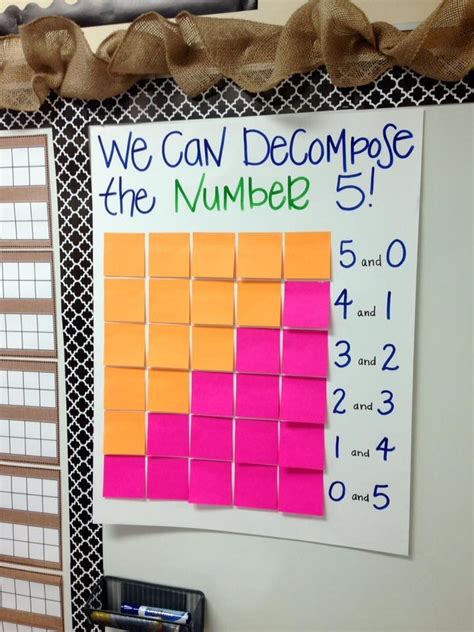 We Can Decompose
the Number 5!
5 and 0
4 and 1
3 and 2
2 and 3
1 and 4
0 and 5